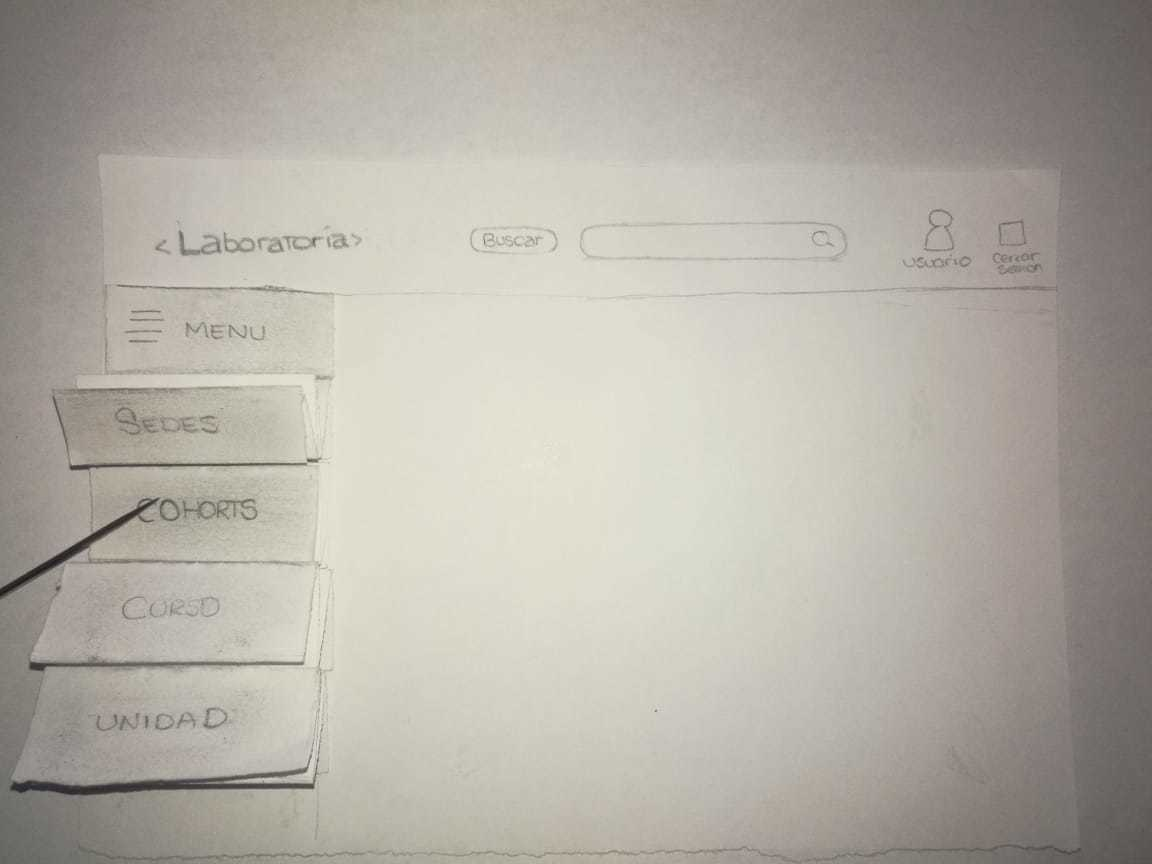 <Laboratoria>
Buscar
usuario
cerrar
sesion
MENU
SEDES
COHORTS
CURSO
UNIDAD